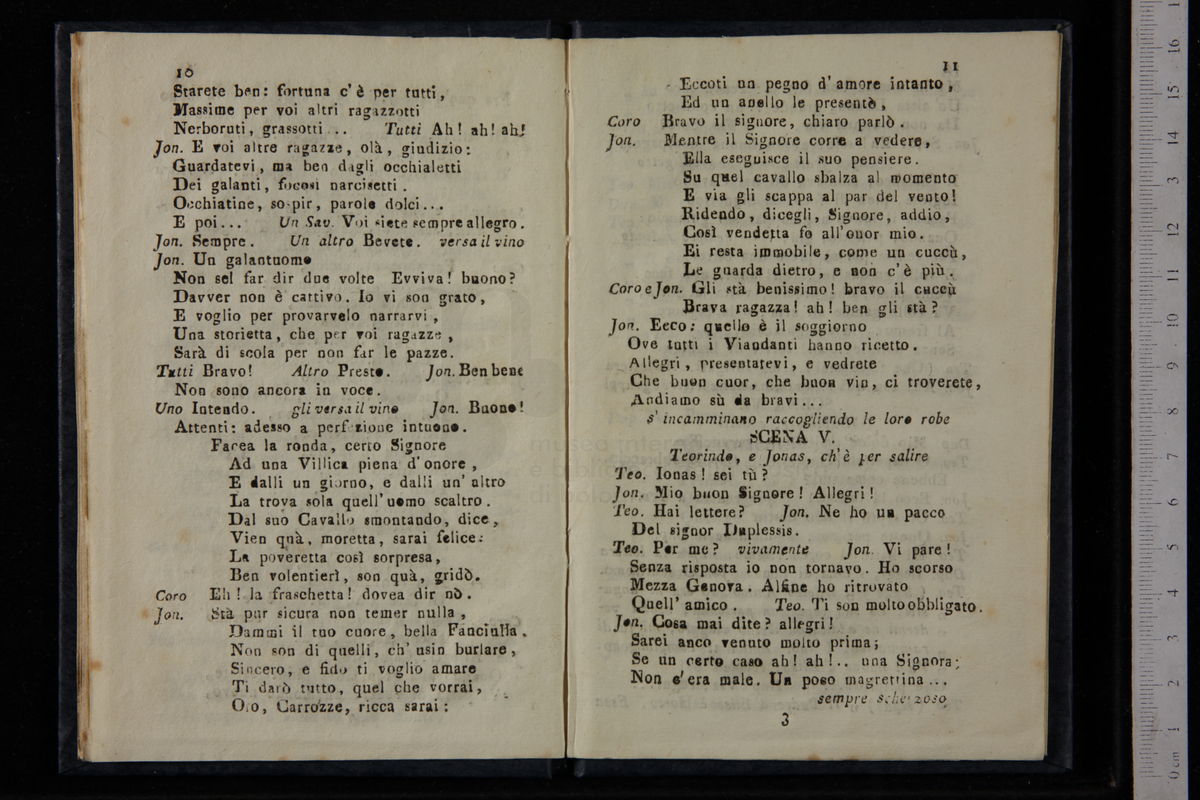 10
Starete ben: fortuna c'è per tutti,
Massime per voi altri ragazzotti
Nerboruti, grassotti .. Tutti Ah! ah! ah!
Jon. E voi altre ragazze, olà, giudizio:
Guardatevi, ma ben dagli occhialetti
Dei galanti, focosi narcisetti.
Occhiatine, sospir, parole dolci...
E poi... Un Sav. Voi siete sempre allegro.
Jon. Sempre. Un altro Bevete. versa il vino
Jon. Un galantuomo
Non sel far dir due volte Evviva! buono?
Davver non è cattivo. Io vi son grato,
E voglio per provarvelo narrarvi,
Una storietta, che per voi ragazze,
Sarà di scola per non far le pazze.
Tutti Bravo! Altro Presto. Jon. Ben bene
Non sono ancora in voce.
Uno Intendo. gli versa il vino Jon. Buono!
Attenti: adesso a perfezione intuono.
Facea la ronda, certo Signore
Ad una Villica piena d'onore,
E dalli un giorno, e dalli un' altro
La trova sola quell' uomo scaltro.
Dal suo Cavallo smontando, dice,
Vien quà, moretta, sarai felice:
La poveretta così sorpresa,
Ben volentierì, son quà, gridò.
Coro Eh! la fraschetta! dovea dir nò.
Jon. Stà pur sicura non temer nulla,
Dammi il tuo cuore, bella Fanciulla.
Non son di quelli, ch' usin burlare,
Sincero, e fido ti voglio amare
Ti darò tutto, quel che vorrai,
Oro, Carrozze, ricca sarai:
11
Eccoti un pegno d' amore intanto,
Ed un anello le presentò,
Coro Bravo il signore, chiaro parlò.
Jon. Mentre il Signore corre a vedere,
Ella eseguisce il suo pensiere.
Su quel cavallo sbalza al momento
E via gli scappa al par del vento!
Ridendo, dicegli, Signore, addio,
Così vendetta fo all' onor mio.
Ei resta immobile, come un cuccù,
Le guarda dietro, e non c'è più.
Coro e Jon. Gli stà benissimo! bravo il cuccù
Brava ragazza! ah! ben gli stà?
Jon. Ecco: quello è il soggiorno
Ove tutti i Viandanti hanno ricetto.
Allegri, presentatevi, e vedrete
Che buon cuor, che buon vin, ci troverete,
Andiamo sù da bravi...
s' incamminano raccogliendo le loro robe
SCENA V.
Teorindo, e Jonas, ch'è per salire
Teo. Ionas! sei tù?
Jon. Mio buon Signore! Allegri!
Teo. Hai lettere? Jon. Ne ho un pacco
Del signor Duplessis.
Teo. Per me? vivamente Jon. Vi pare!
Senza risposta io non tornavo. Ho scorso
Mezza Genova. Alfine ho ritrovato
Quell' amico. Teo. Ti son molto obbligato.
Jon. Cosa mai dite? allegri!
Sarei anco venuto molto prima;
Se un certo caso ah! ah!.. una Signora;
Non c'era male. Un poco magrettina...
sempre scherzoso
3